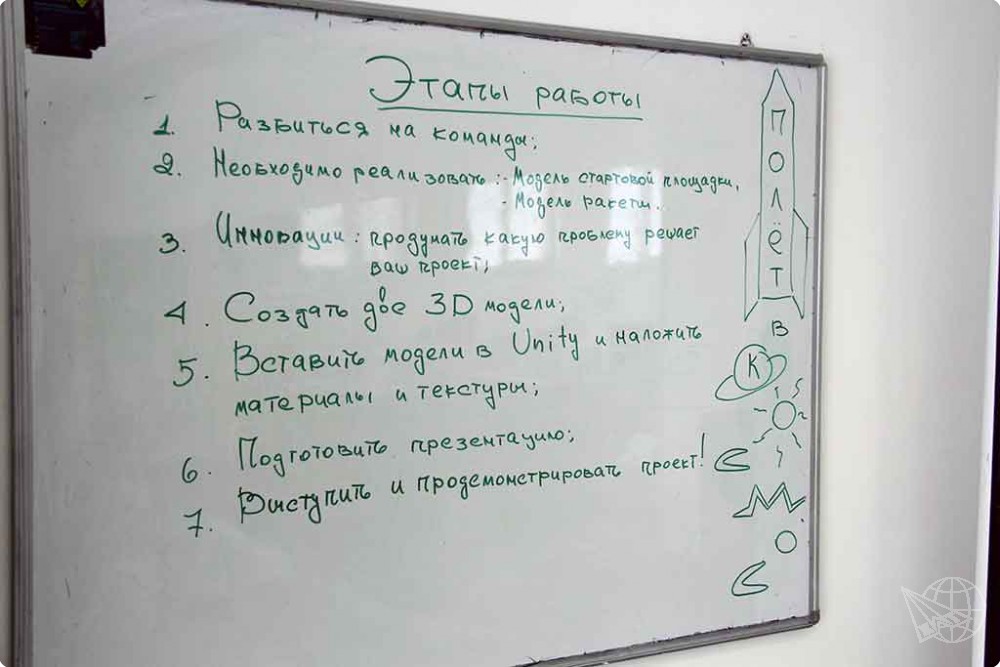 Этапы работы
1. Разбиться на команды;
2. Необходимо реализовать: - Модель стартовой площадки,
- Модель ракеты.
3. Инновации: продумать какую проблему решает
ваш проект;
4. Создать две 3D модели;
5. Вставить модели в Unity и наложить
материалы и текстуры;
6. Подготовить презентацию;
7. Выступить и продемонстрировать проект!
ПОЛЁТ
В
К
О
С
М
О
С